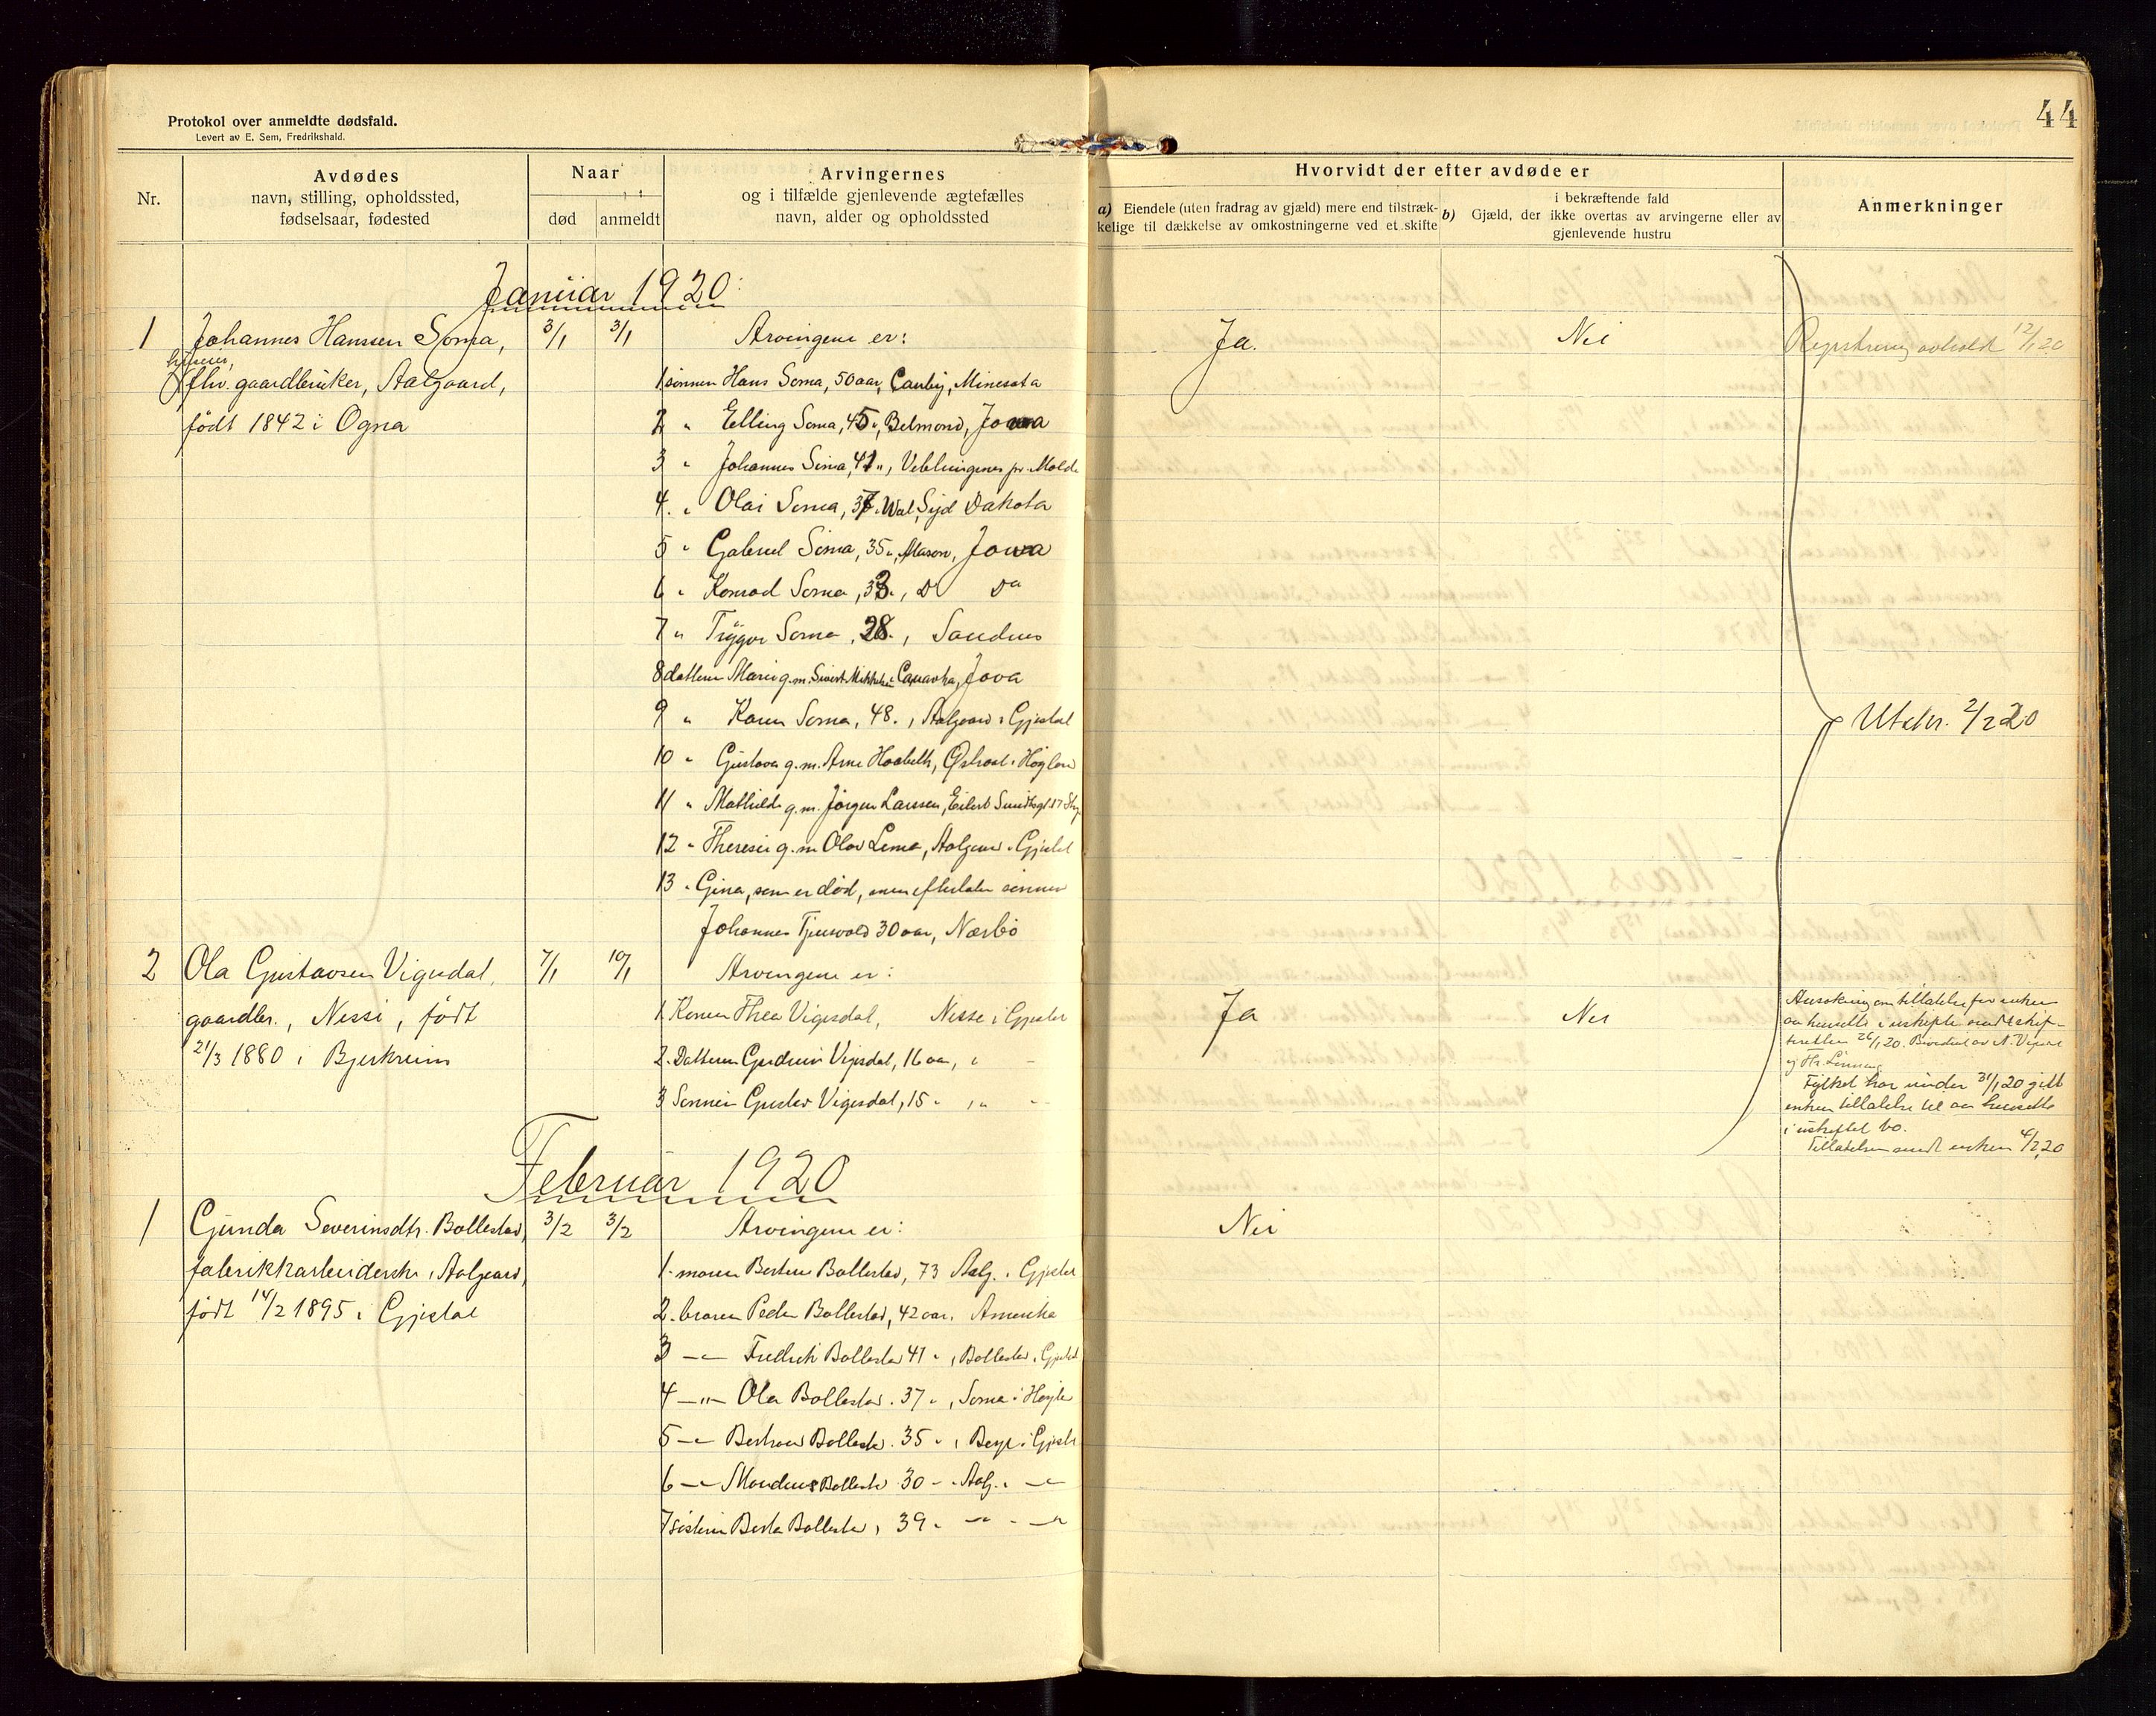 Protokol over anmeldte dødsfald.
Levert av E. Sem, Fredrikshald.
44
Nr.
Avdødes
navn, stilling, opholdssted,
fødselsaar, fødested
Naar
død
anmeldt
Arvingernes
og i tilfælde gjenlevende ægtefælles
navn, alder og opholdssted
Hvorvidt der efter avdøde er
a) Eiendele (uten fradrag av gjæld) mere end tilstræk-
kelige til dækkelse av omkostningerne ved et skifte
i bekræftende fald
b) Gjæld, der ikke overtas av arvingerne eller av
gjenlevende hustru
Anmerkninger
Januar 1920
1 Johannes Hanssen Soma, 3/1 3/1 Arvingene er: Ja. Nei avholdt 12/1 20
fhv. gaardbruker, Aalgaard,
født 1842 i Ogna
1 sønnen Hans Soma, 50 aar, Canby, Minesota
2 " Elling Soma, 45 ", Belmond, Jowa
3 " Johannes Soma, 41 ", Veblungsnes pr. Molde
4. " Olai Soma, 37 " Wal, Syd Dakota
5 " Gabriel Soma, 35 ", Mason, Jowa
6 " Konrad Soma, 33 ", Do Do
7 " Trygve Soma, 28 ", Sandnes
8 datteren Marie g.m. Sivert Jova
9 " Karen Soma, 48 ", Aalgaard i Gjestal
10 " Gustava g.m. Arne Hoabeth, i Høyland
11 " Mathilde g.m. Jørgen Larssen, Eilert Sundtsgt 17
12 " Therese g.m Olav Lima, Aalgaard i Gjestal
13 " Gina, som er død, men efterlater sønnen
Johannes 30 aar, Nærbø
Utskr. 2/2 20
2 Ola Gustavsen Vigesdal, 7/1 10/1 Arvingene er:
gaardbr., Nesse, født
21/3 1880 i Bjerkreim
1 Konen Thea Vigesdal, Nesse i Gjestal Ja Nei
2. Datteren Gudrun Vigesdal, 16 aar, "
3 Sønnen Gustav Vigesdal, 15 " , "
Ansøkning om tillatelse for enken
aa hensitte i uskifte skif-
teretten 26/1 20.
Fylket har under 31/1 20 gitt
enken tillatelse til aa hensitte
i uskiftet bo.
Tillatelsen sendt enken 4/2 20
Februar 1920
1 Gunda Severinsdtr. Bollestad, 3/2 3/2 Arvingene er: Nei
fabrikkarbeiderske, Aalgaard,
født 14/2 1895 i Gjestal
1. moren Bollestad, 73 Aalg. i Gjestal
2. broren Peder Bollestad, 42 aar. Amerika
3 — " — Fredrik Bollestad 41 " , Bollestad i Gjestal
4 — " — Ola Bollestad. 37 " , Soma i Høyla
5 — " — Bollestad. 35 " , i Gjestal
6 — " — Bollestad 30 - " Aalg. " — " —
7 søsteren Berta Bollestad, 39 " — " — " — " —